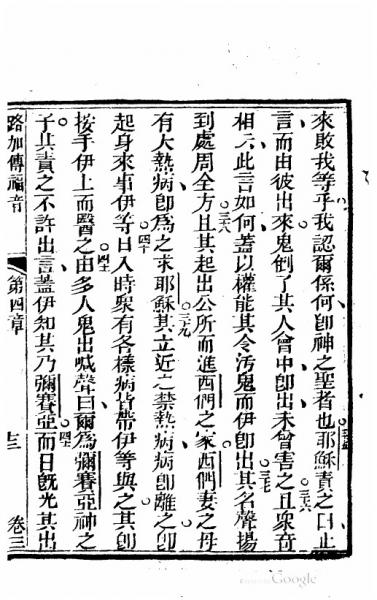 來敗我等乎我認爾係何卽神之聖者也耶穌責之曰止
三五
言而由彼出來鬼倒了其人曾中卽出未曾害之且衆奇
三六
相示此言如何蓋以權能其令汚鬼而伊卽出其名聲揚
三七
到處周全方且其起出公所而進西們之家西們妻之母
三八
有大熱病卽爲之求耶穌其立近之禁熱病病卽離之卽
三九
起身來事伊等日入時衆有各樣病皆帶伊等與之其卽
四十
按手伊上而醫之由多人鬼出喊聲曰爾爲彌賽亞神之
四一
子其責之不許出言蓋伊知其乃彌賽亞而日旣光其出
四二
路加傳福音 第四章 十三 卷三
Google